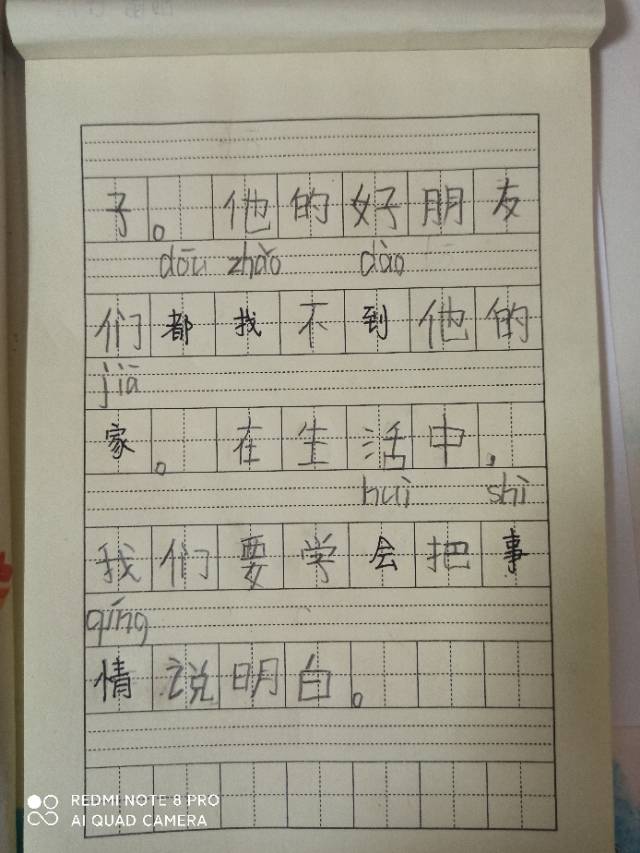 子。他的好朋友
dōu zhǎo dào
们都找不到他的
jiā
家。在生活中,
huì shì
我们要学会把事
qíng
情说明白。
REDMI NOTE 8 PRO
AI QUAD CAMERA